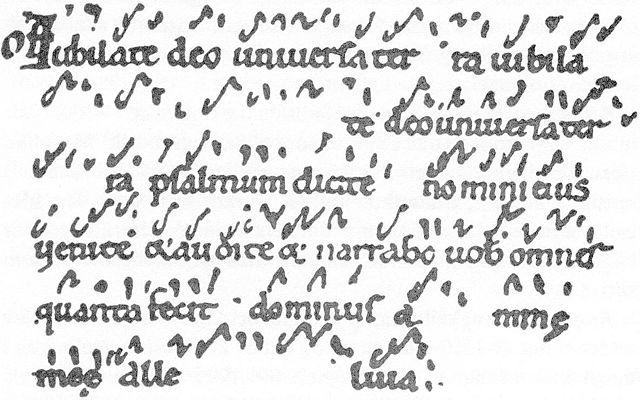 Iubilate deo uniuersa ter ra iubila
te deo uniuersa ter
ra psalmum dicite nomini eius
uenite & audite & narrabo uob omnes
quanta fecit dominus a nimę
meę alle luia: